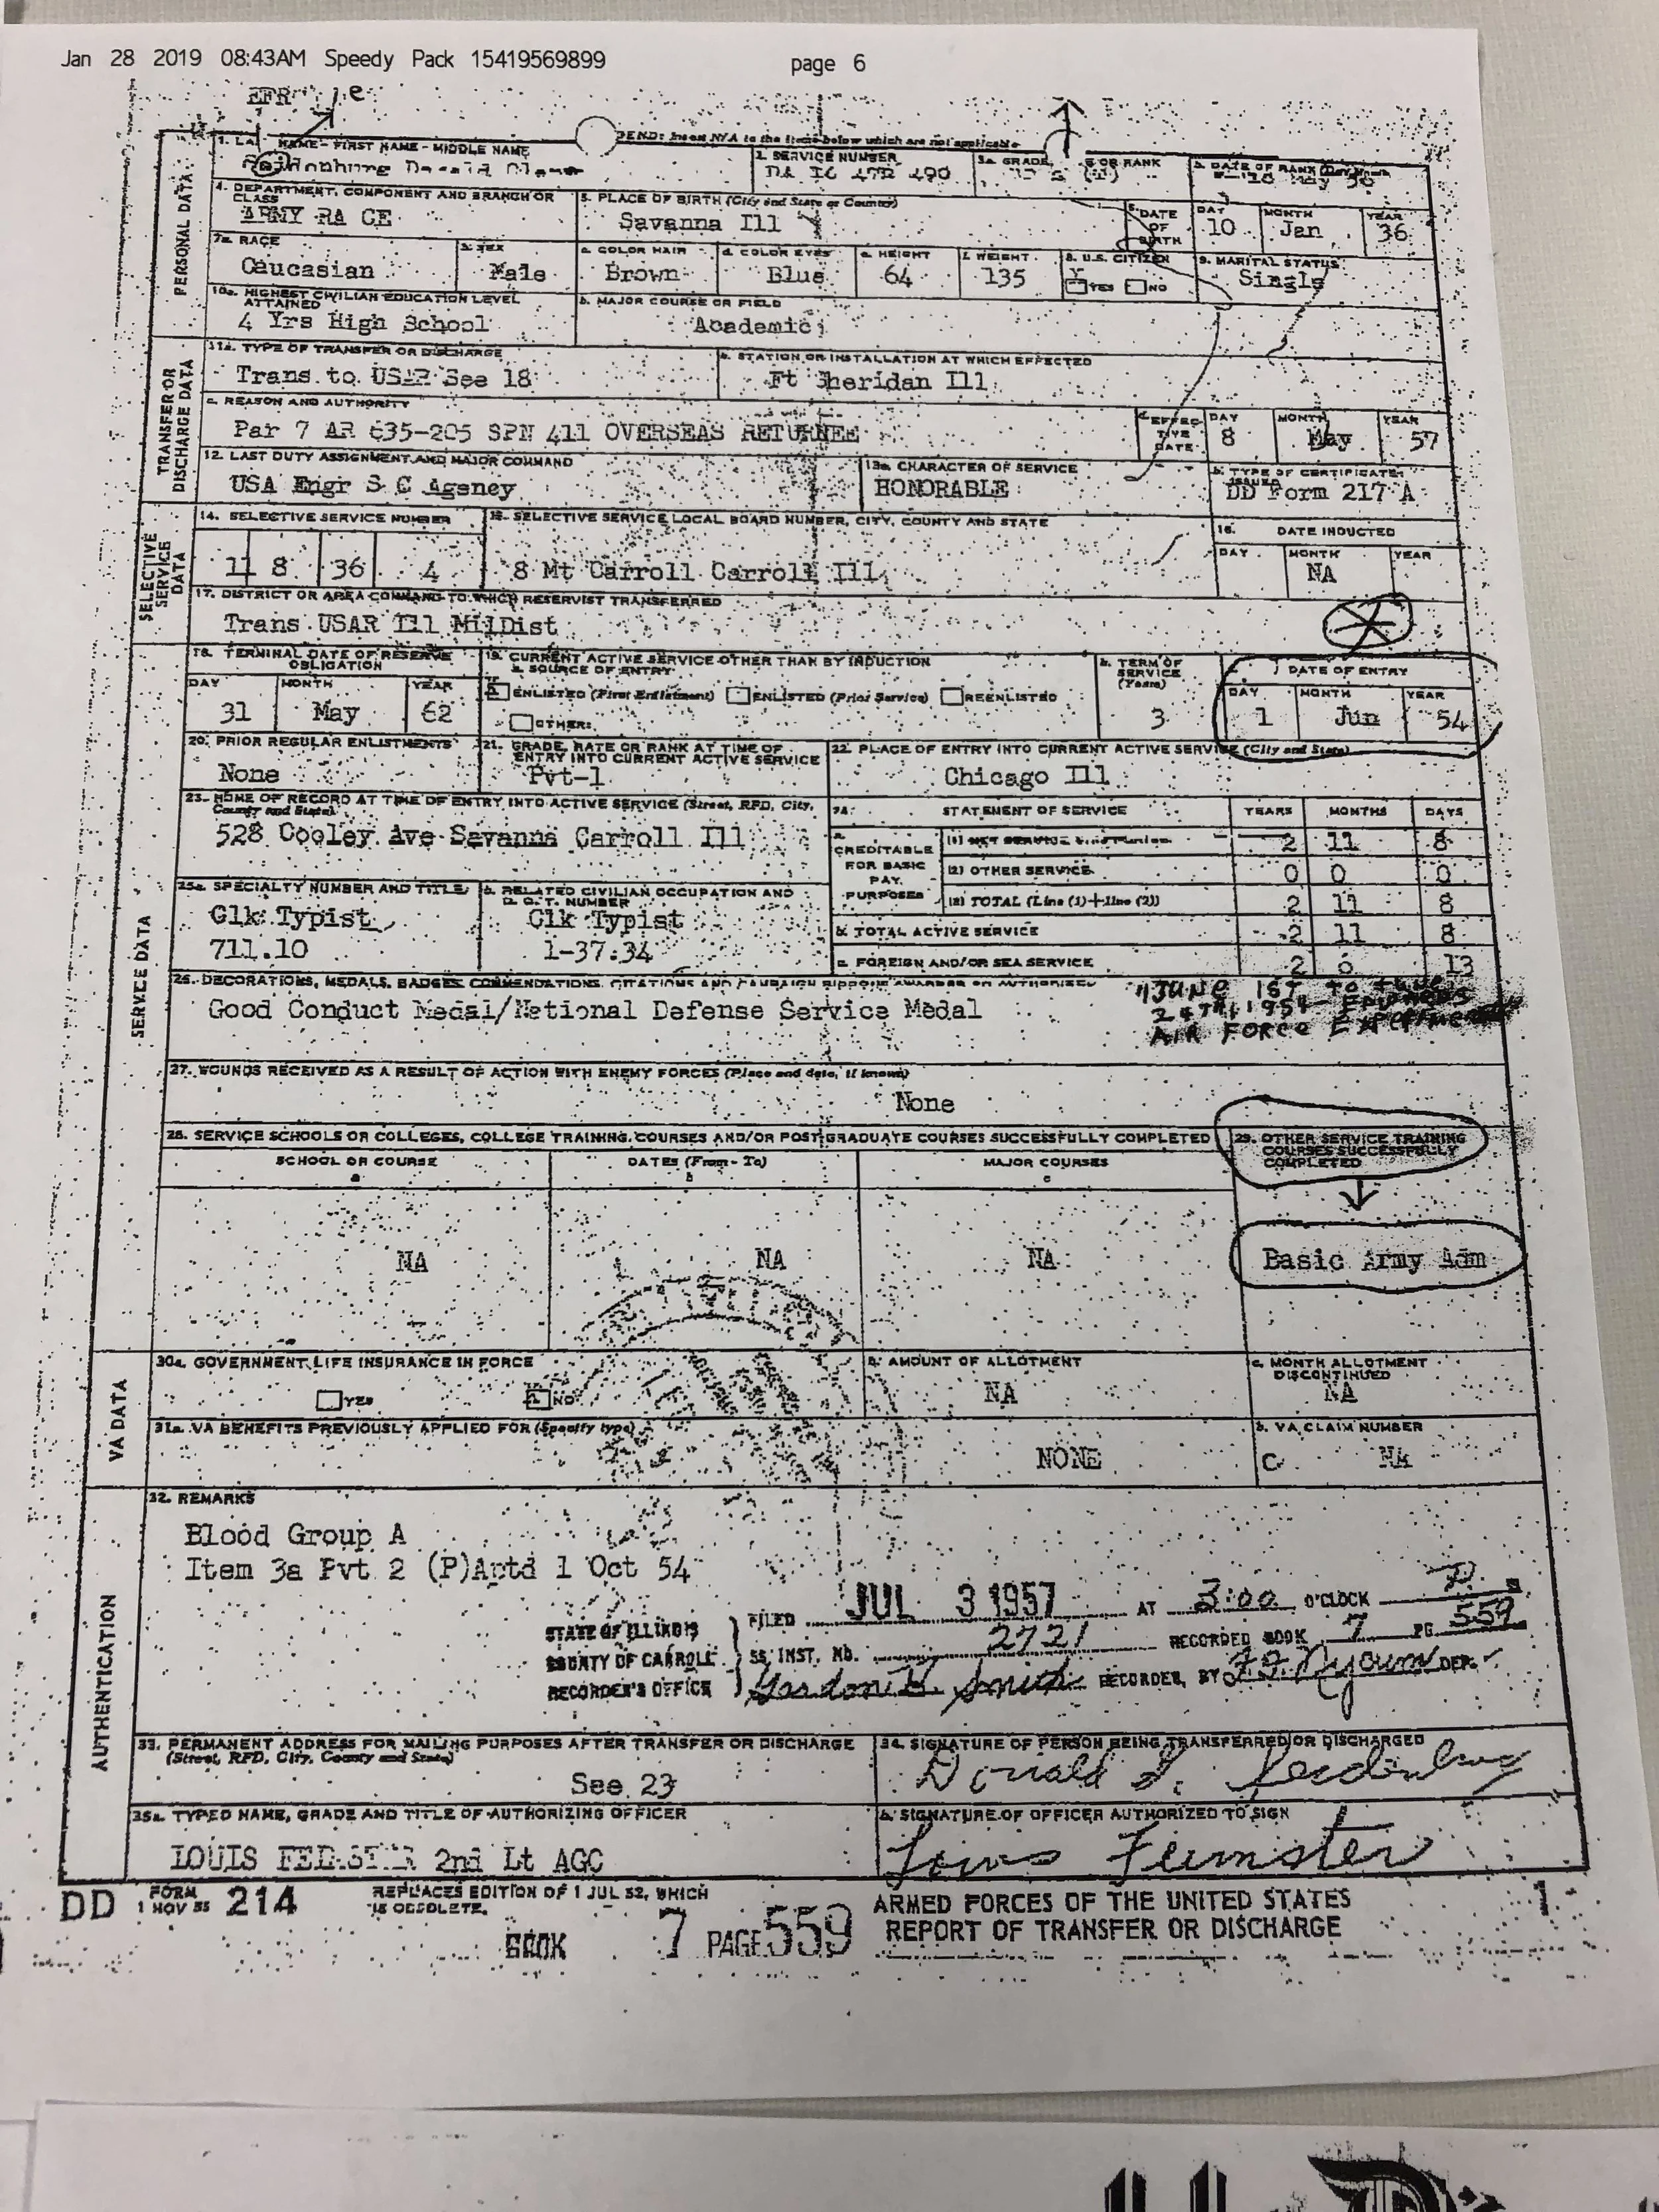 Jan 28 2019 08:43AM Speedy Pack 15419569899 page 6
NAME - FIRST NAME - MIDDLE NAME
2. SERVICE NUMBER
3a. GRADE, OR RANK
b. DATE OF RANK
Insert N/A to the items below which are not applicable
PERSONAL DATA
4. DEPARTMENT, COMPONENT AND BRANCH OR CLASS
ARMY RA CE
5. PLACE OF BIRTH (City and State or Country)
Savanna Ill
6. DATE OF BIRTH
DAY MONTH YEAR
10 Jan 36
7a. RACE
Caucasian
b. SEX
Male
c. COLOR HAIR
Brown
d. COLOR EYES
Blue
e. HEIGHT
64
f. WEIGHT
135
8. U.S. CITIZEN
YES NO
9. MARITAL STATUS
Single
10a. HIGHEST CIVILIAN EDUCATION LEVEL ATTAINED
4 Yrs High School
b. MAJOR COURSE OR FIELD
Academic
TRANSFER OR DISCHARGE DATA
11a. TYPE OF TRANSFER OR DISCHARGE
Trans to USAR See 18
b. STATION OR INSTALLATION AT WHICH EFFECTED
Ft Sheridan Ill
c. REASON AND AUTHORITY
Par 7 AR 635-205 SPN 411 OVERSEAS RETURNEE
d. EFFECTIVE DATE
DAY MONTH YEAR
8 May 57
12. LAST DUTY ASSIGNMENT AND MAJOR COMMAND
USA Engr S C Agency
13a. CHARACTER OF SERVICE
HONORABLE
b. TYPE OF CERTIFICATE ISSUED
DD Form 217 A
SELECTIVE SERVICE DATA
14. SELECTIVE SERVICE NUMBER
11 8 36 4
15. SELECTIVE SERVICE LOCAL BOARD NUMBER, CITY, COUNTY AND STATE
8 Mt Carroll Carroll Ill
16. DATE INDUCTED
DAY MONTH YEAR
NA
17. DISTRICT OR AREA COMMAND TO WHICH RESERVIST TRANSFERRED
Trans USAR Ill MilDist
18. TERMINAL DATE OF RESERVE OBLIGATION
DAY MONTH YEAR
31 May 62
19. CURRENT ACTIVE SERVICE OTHER THAN BY INDUCTION
a. SOURCE OF ENTRY
ENLISTED (First Enlistment) ENLISTED (Prior Service) REENLISTED
OTHER:
b. TERM OF SERVICE (Years)
3
DATE OF ENTRY
DAY MONTH YEAR
1 Jun 54
SERVICE DATA
20. PRIOR REGULAR ENLISTMENTS
None
21. GRADE, RATE OR RANK AT TIME OF ENTRY INTO CURRENT ACTIVE SERVICE
Pvt-1
22. PLACE OF ENTRY INTO CURRENT ACTIVE SERVICE (City and State)
Chicago Ill
23. HOME OF RECORD AT TIME OF ENTRY INTO ACTIVE SERVICE (Street, RFD, City, County and State)
528 Cooley Ave Savanna Carroll Ill
24. STATEMENT OF SERVICE YEARS MONTHS DAYS
a. CREDITABLE FOR BASIC PAY PURPOSES
(1) NET SERVICE 2 11 8
(2) OTHER SERVICE 0 0 0
(3) TOTAL (Line (1) + line (2)) 2 11 8
b. TOTAL ACTIVE SERVICE 2 11 8
c. FOREIGN AND/OR SEA SERVICE 2 6 13
25a. SPECIALTY NUMBER AND TITLE
Clk Typist
711.10
b. RELATED CIVILIAN OCCUPATION AND D. O. T. NUMBER
Clk Typist
1-37.34
26. DECORATIONS, MEDALS, BADGES, COMMENDATIONS, CITATIONS AND CAMPAIGN RIBBONS AWARDED OR AUTHORIZED
Good Conduct Medal/National Defense Service Medal
JUNE 1ST TO June
24TH 1954
AIR FORCE
27. WOUNDS RECEIVED AS A RESULT OF ACTION WITH ENEMY FORCES (Place and date, if known)
None
28. SERVICE SCHOOLS OR COLLEGES, COLLEGE TRAINING, COURSES AND/OR POST-GRADUATE COURSES SUCCESSFULLY COMPLETED
SCHOOL OR COURSE
a
DATES (From - To)
b
MAJOR COURSES
c
NA NA NA
29. OTHER SERVICE TRAINING COURSES SUCCESSFULLY COMPLETED
Basic Army Adm
VA DATA
30a. GOVERNMENT LIFE INSURANCE IN FORCE
YES NO
b. AMOUNT OF ALLOTMENT
NA
c. MONTH ALLOTMENT DISCONTINUED
NA
31a. VA BENEFITS PREVIOUSLY APPLIED FOR (Specify type)
NONE
b. VA CLAIM NUMBER
C NA
AUTHENTICATION
32. REMARKS
Blood Group A
Item 3a Pvt 2 (P)Aptd 1 Oct 54
STATE OF ILLINOIS
COUNTY OF CARROLL
RECORDER'S OFFICE
SS
FILED JUL 3 1957 AT 3:00 O'CLOCK P.
INST. NO. 2721 RECORDED BOOK 7 PG. 559
Gordon Smith RECORDER, BY DEP.
33. PERMANENT ADDRESS FOR MAILING PURPOSES AFTER TRANSFER OR DISCHARGE (Street, RFD, City, County and State)
See 23
34. SIGNATURE OF PERSON BEING TRANSFERRED OR DISCHARGED
Donald
35a. TYPED NAME, GRADE AND TITLE OF AUTHORIZING OFFICER
LOUIS FEEMSTER 2nd Lt AGC
b. SIGNATURE OF OFFICER AUTHORIZED TO SIGN
Louis Feemster
DD FORM 1 NOV 55 214
REPLACES EDITION OF 1 JUL 52, WHICH IS OBSOLETE.
BOOK 7 PAGE 559
ARMED FORCES OF THE UNITED STATES
REPORT OF TRANSFER OR DISCHARGE
1